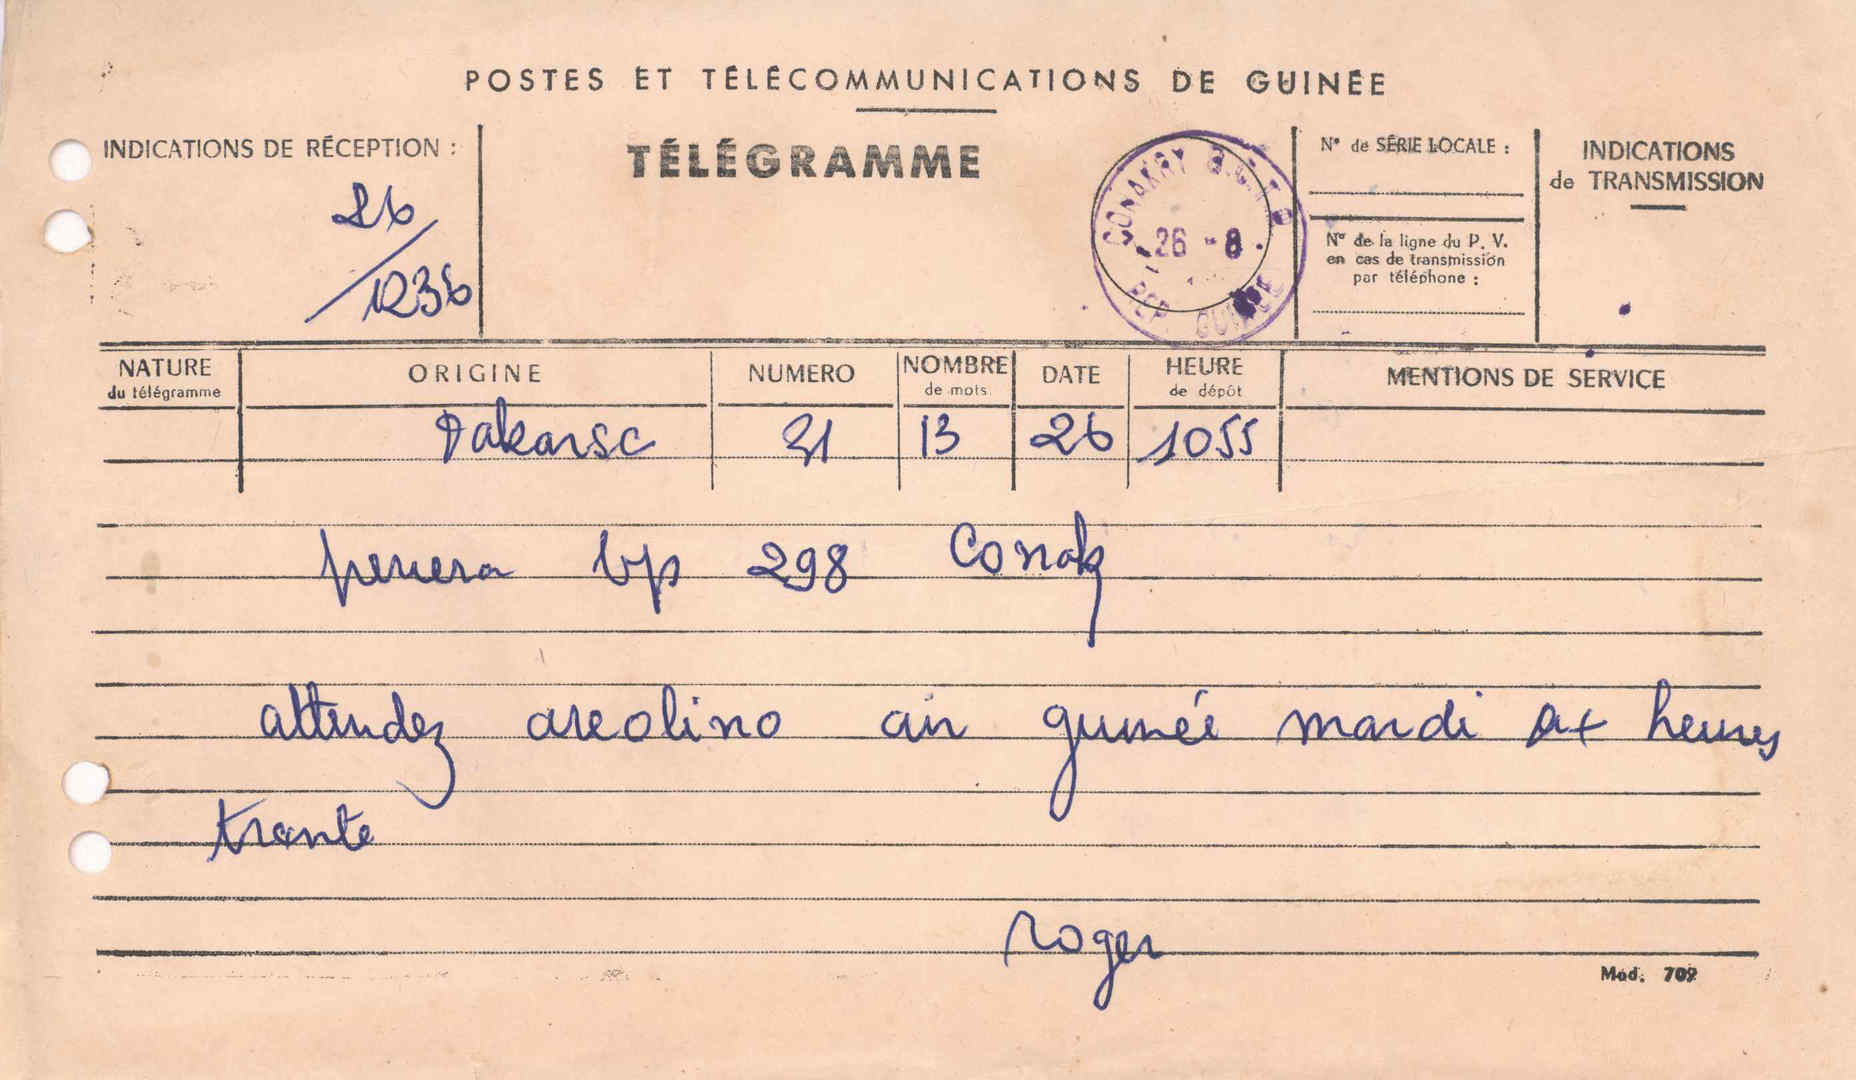 POSTES ET TÉLÉCOMMUNICATIONS DE GUINÉE
INDICATIONS DE RÉCEPTION :
26/1236
TÉLÉGRAMME
CONAKRY
26 - 8
REP. GUINEE
N° de SÉRIE LOCALE :
N° de la ligne du P. V.
en cas de transmission
par téléphone :
INDICATIONS
de TRANSMISSION
NATURE
du télégramme
ORIGINE
NUMERO
NOMBRE
de mots
DATE
HEURE
de dépôt
MENTIONS DE SERVICE
Dakarsc 31 13 26 1055
bp 298 Conak
attendez areolino air guinée mardi heures
trente
roger
Mod. 709